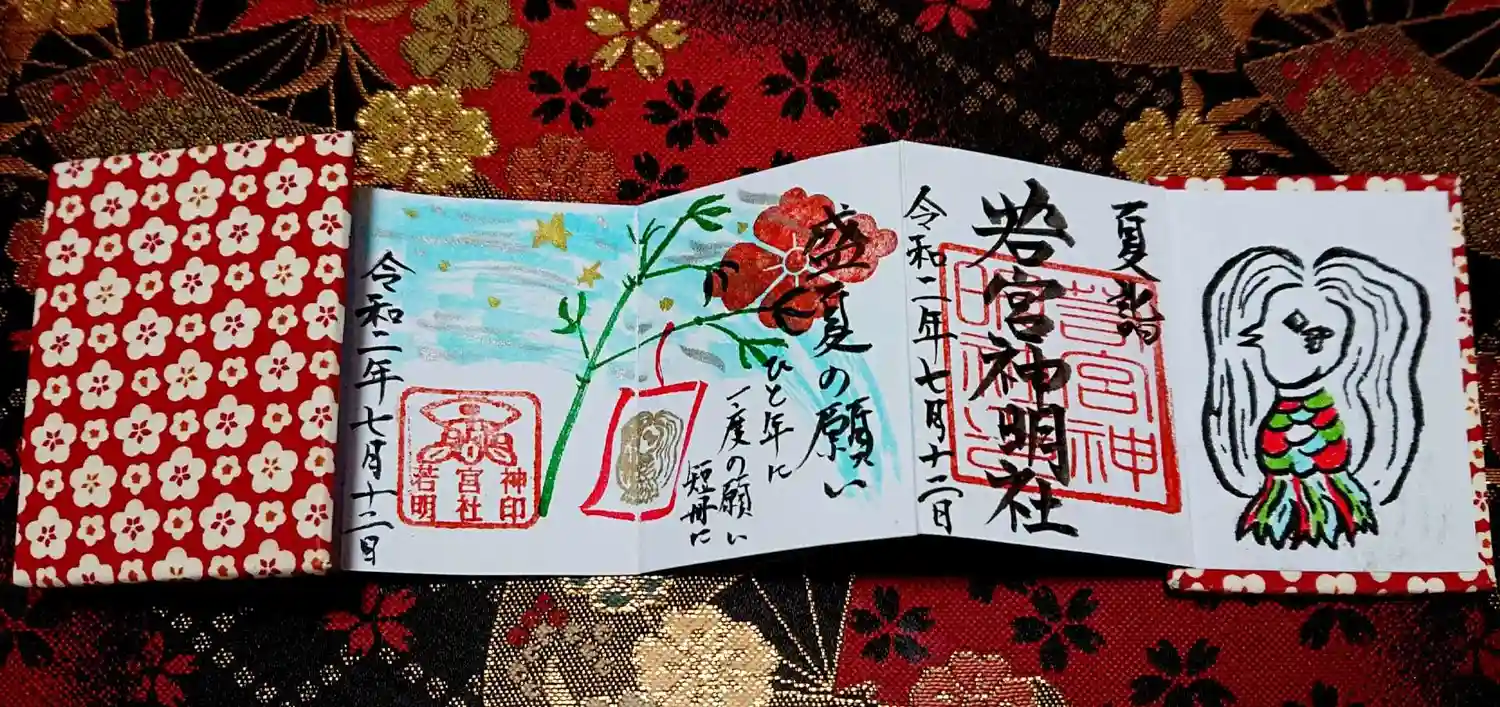 夏詣
若宮神明社
令和二年七月十二日
盛夏の願い
ひと年に
一度の願い
短冊に
若宮神
明社印
令和二年七月十二日